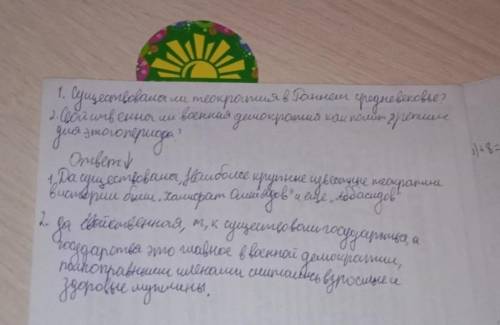 1. Существовала ли теократия в Раннем средневековье?
2. Свойственны ли военная демократия как полит. режим
для этого периода?
Ответ ↓
1. Да существовала, Наиболее крупные известные теократии
в истории были "Халифат Омейядов" и еще "Аббасидов"
2. да свойственная, т.к существовали государства, а
государства это главное в военной демократии,
полноправными членами считались взрослые и
здоровые мужчины.